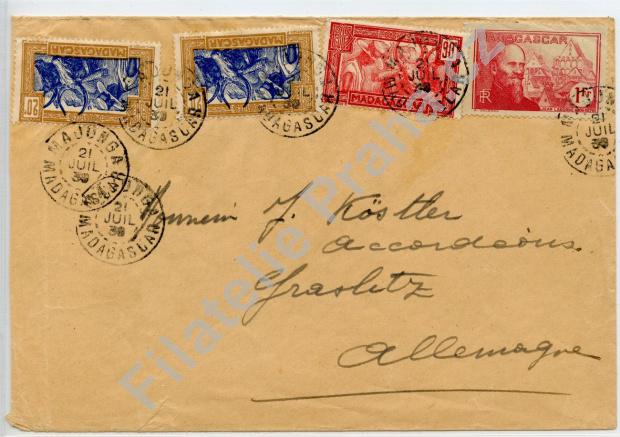 MADAGASCAR
20
MADAGASCAR
90
MADAGASCAR
MADAGASCAR
RF
MAJUNGA
21
JUIL
39
MADAGASCAR
MAJUNGA
21
JUIL
39
MADAGASCAR
J. Köstler
Accordéons
Graslitz
Allemagne
Filatelie Praha.cz